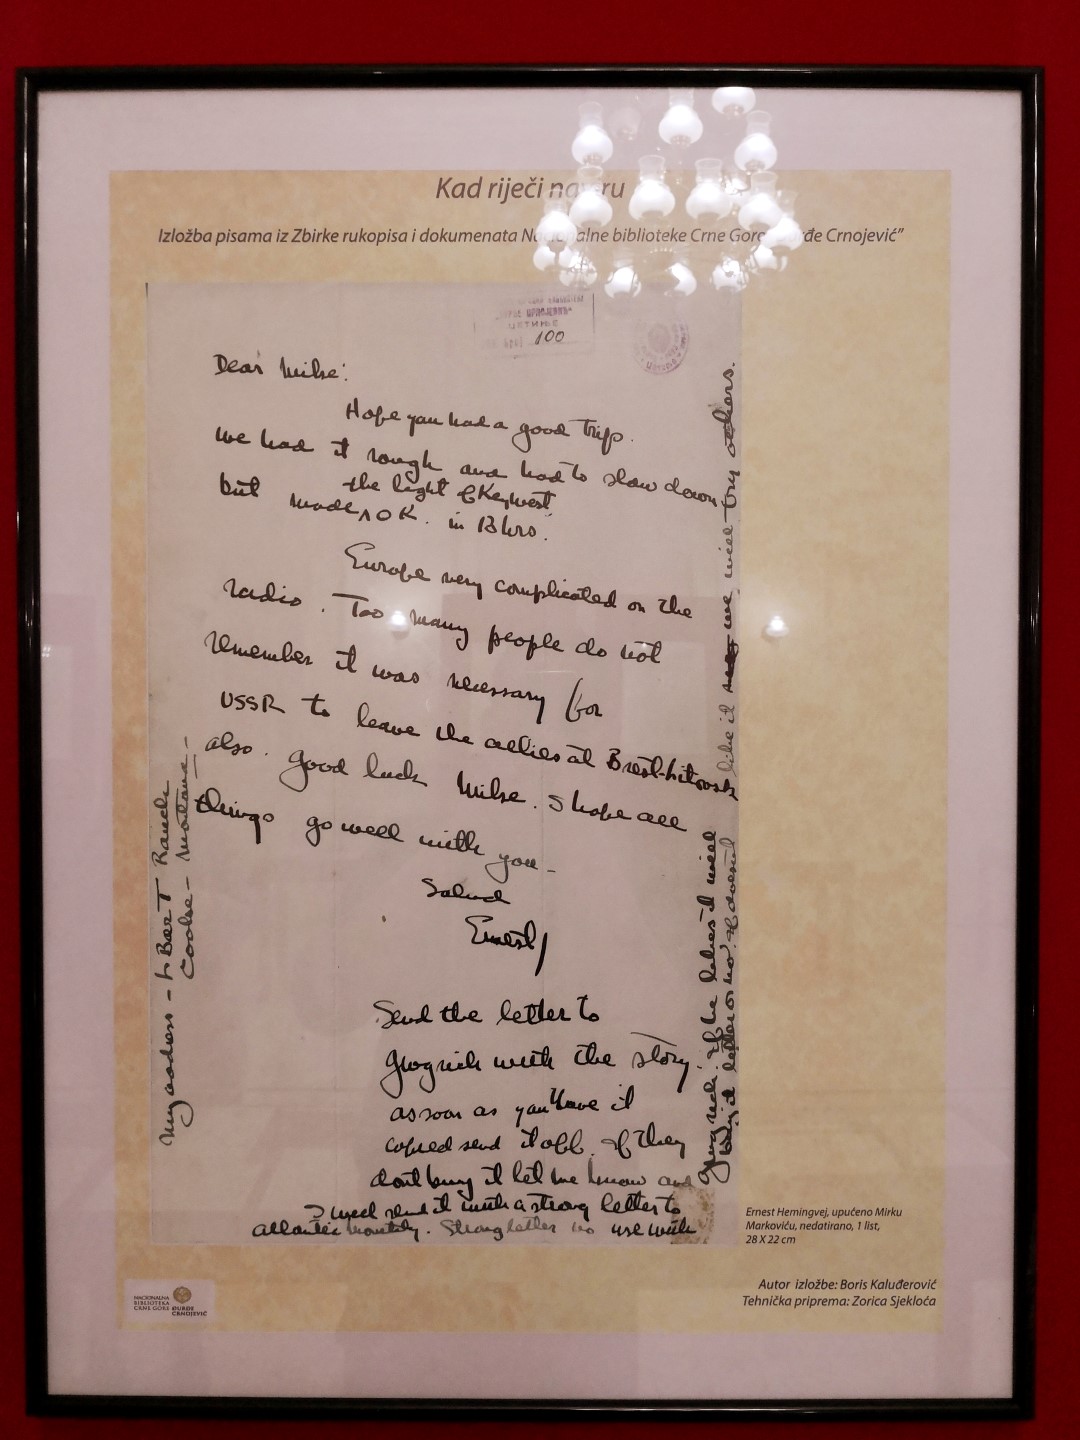 Kad riječi
Izložba pisama iz Zbirke rukopisa i dokumenata Nacionalne biblioteke Crne Gore Crnojević”
ЦЕТИЊЕ
100
Dear Mike:
Hope you had a good trip.
We had it rough and had to slow down
the light of Key west
but made OK. in 13 hrs.
Europe very complicated on the
radio. Too many people do not
remember it was necessary for
USSR to leave the allies at Brest-Litovsk
also. Good luck Mike. I hope all
things go well with you –
Salud
Ernest
Send the letter to
Gingrich with the story.
as soon as you have it
copied send it off. If they
dont buy it let me know and
I will send it with a strong letter to
Atlantic Monthly. Strong letter no use with
Gingrich. If he likes it will
buy it letter or no. If doesnt
like it we will try others.
My address – L Bar T Ranch
Cooke – Montana –
Ernest Hemingvej, upućeno Mirku
Markoviću, nedatirano, 1 list,
28 X 22 cm
Autor izložbe: Boris Kaluđerović
Tehnička priprema: Zorica Sjekloća
NACIONALNA
BIBLIOTEKA
CRNE GORE ĐURĐE
CRNOJEVIĆ